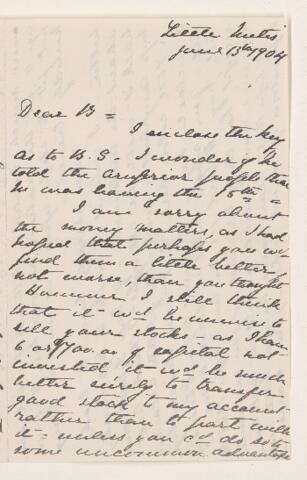 Little Metis
June 13th 1904
Dear B =
I enclose the key
as to B.S. I wonder if he
told the Arnprior people that
he was leaving the 15th =
I am sorry about
the money matters, as I had
hoped that perhaps you wd
find them a little better,
not worse, than you thought
However I still think
that it wd be unwise to
sell your stocks - as I have
6 or $700. of capital not
invested it wd be much
better surely to transfer
good stock to my account
rather than to part with
it = unless you cd do so to
some uncommon advantage